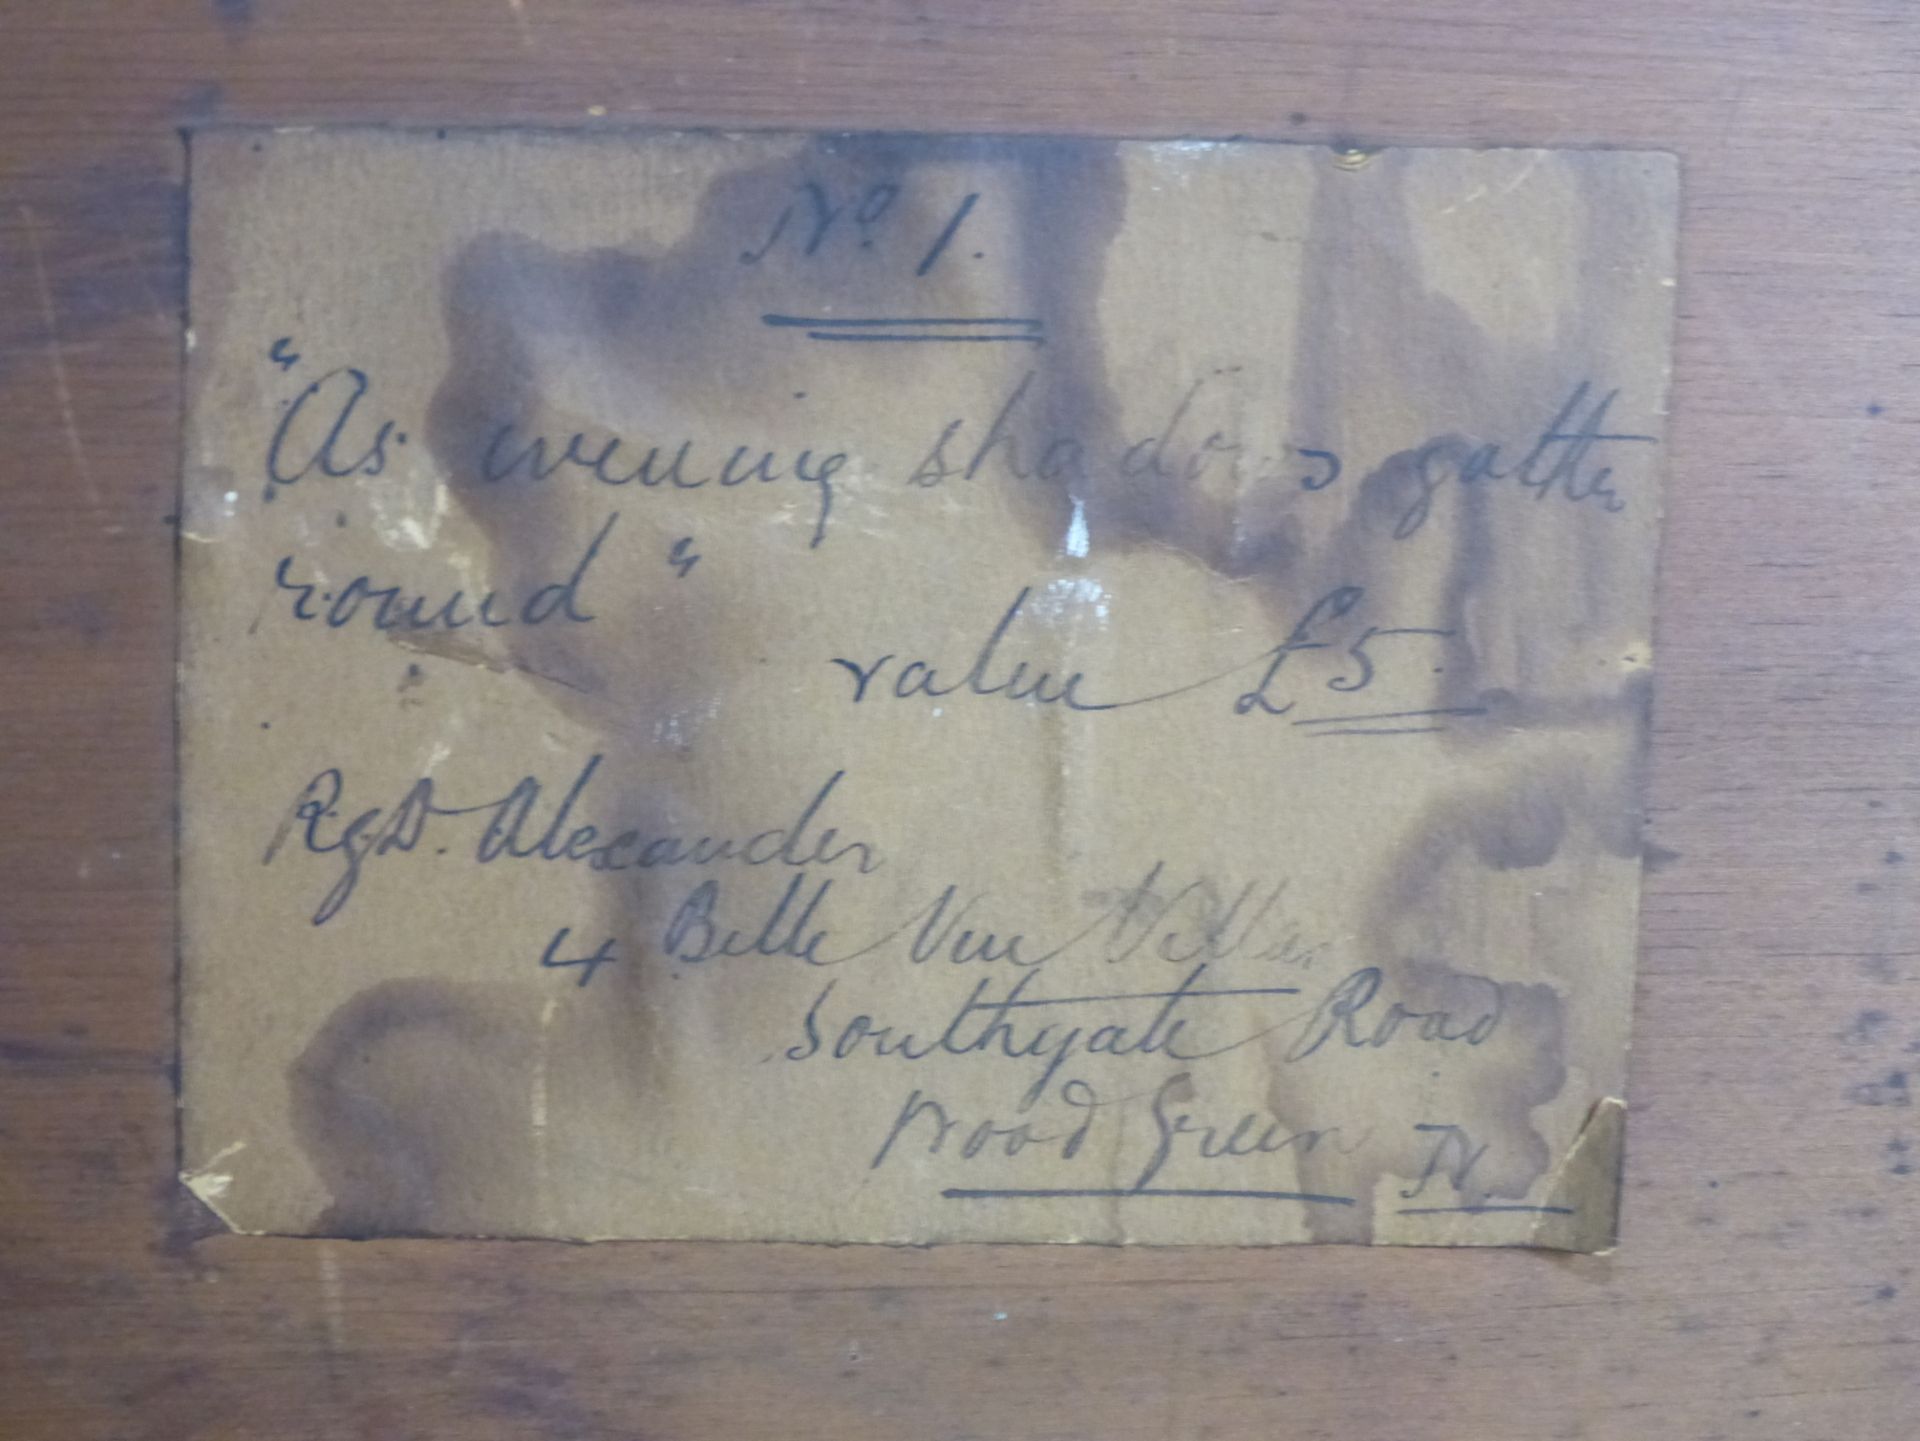 No 1.
"As evening shadows gather
round"
value £5.
Rg.D. Alexander
4 Belle Vue Villas
Southgate Road
Wood Green N.